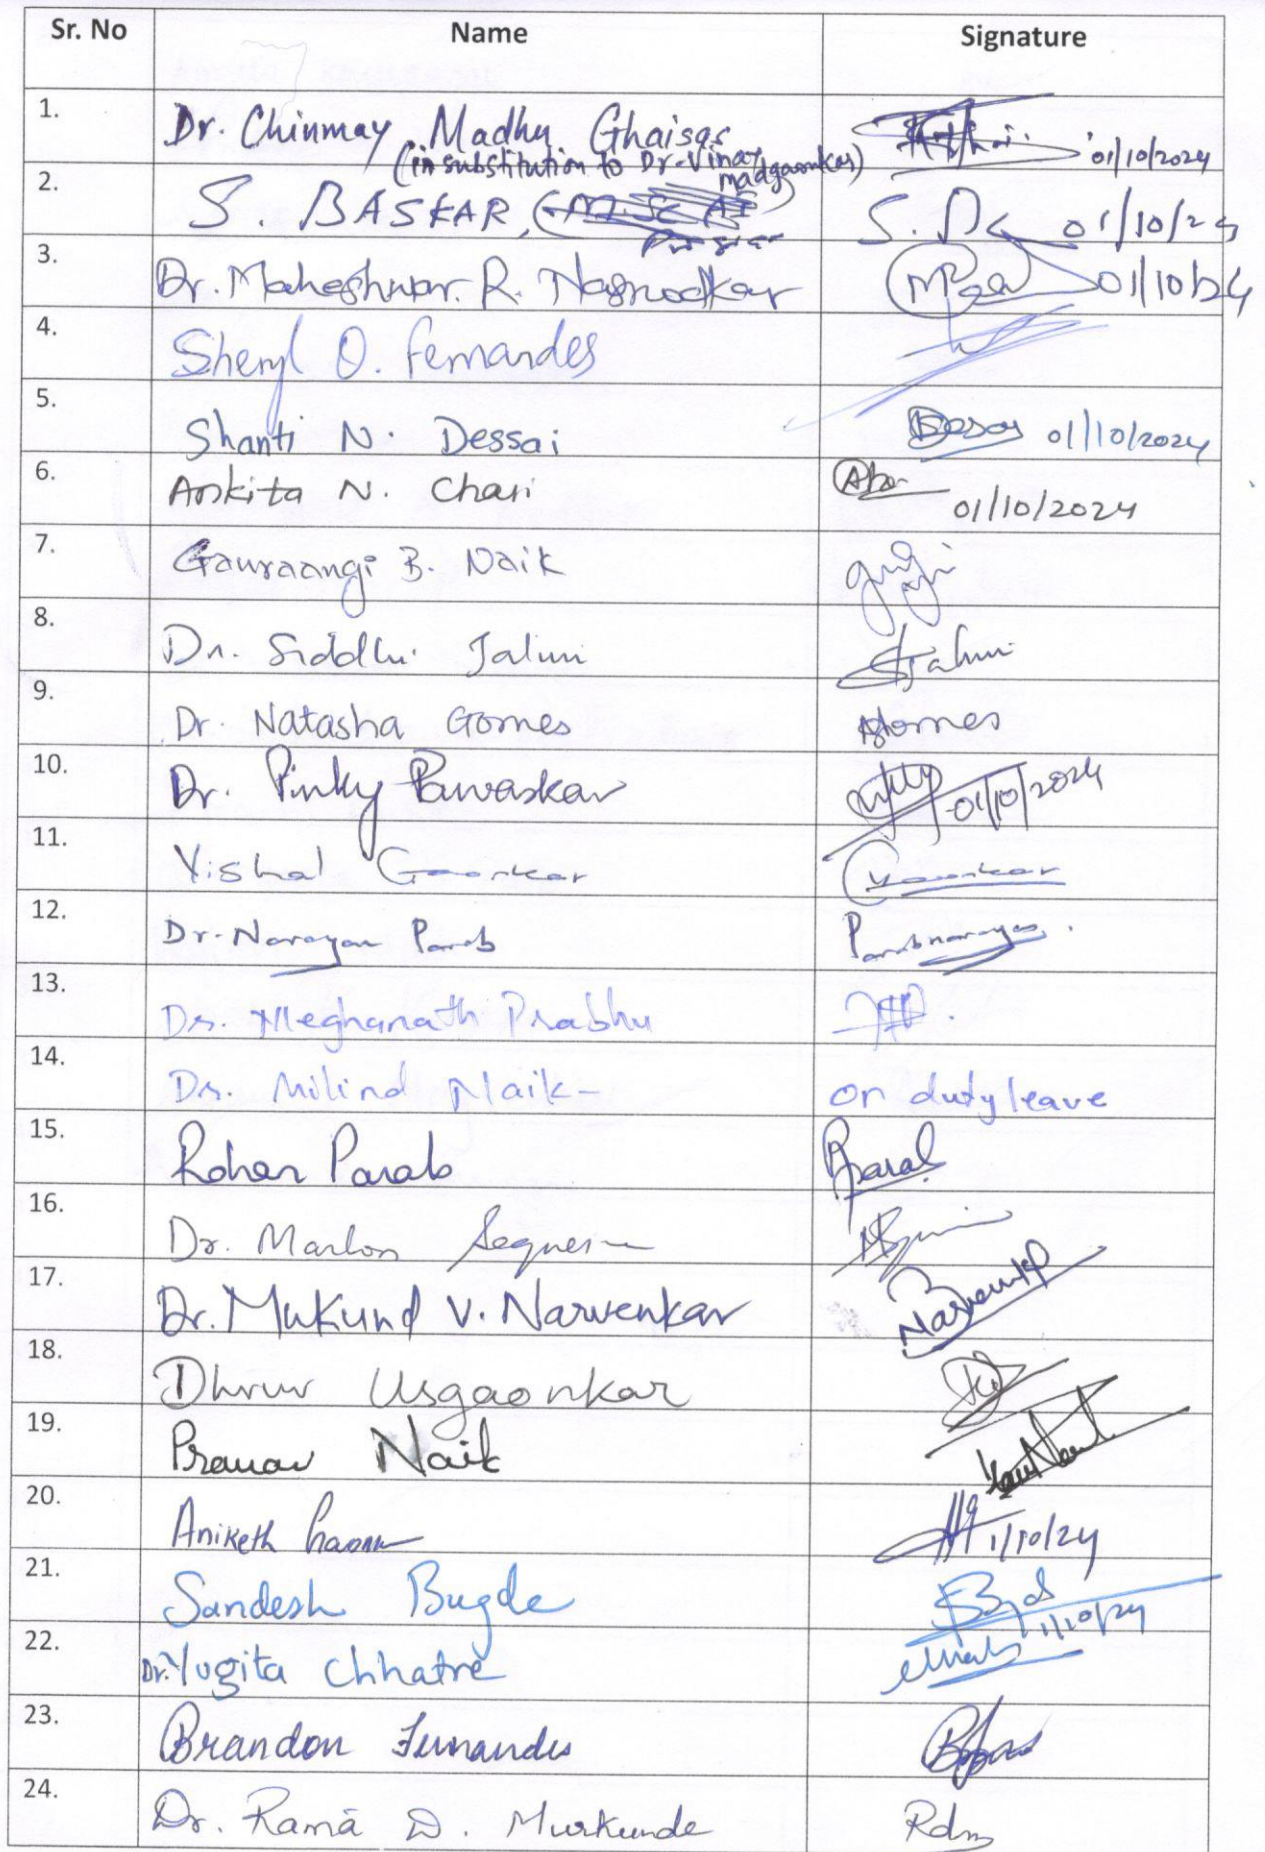 Sr. No Name Signature
1. Dr. Chinmay Madhu Ghaisas 01/10/2024
(in substitution to Dr. Vinay
madgaonkar)
2. S. BASKAR, S. 01/10/24
3. Dr. Maheshwar. R. Nasnodkar 01/10/24
4. Sheryl O. Fernandes
5. Shanti N. Dessai Desai 01/10/2024
6. Ankita N. Chari 01/10/2024
7. Gauraangi B. Naik
8. Dr. Siddhi Jalmi SJalmi
9. Dr. Natasha Gomes NGomes
10. Dr. Pinky Pawaskar 01/10/2024
11. Vishal Gaonkar Gaonkar
12. Dr. Narayan Parab Parabnarayan.
13. Dr. Meghanath Prabhu
14. Dr. Milind Naik- on duty leave
15. Rohan Parab Parab
16. Dr. Marlon Sequeira
17. Dr. Mukund V. Narvenkar
18. Dhruv Usgaonkar
19. Pranav Naik
20. Aniketh Gaonkar 1/10/24
21. Sandesh Bugde 1/10/24
22. Dr. Yugita Chhatre
23. Brandon Fernandes
24. Dr. Ramā D. Murkunde Rdm